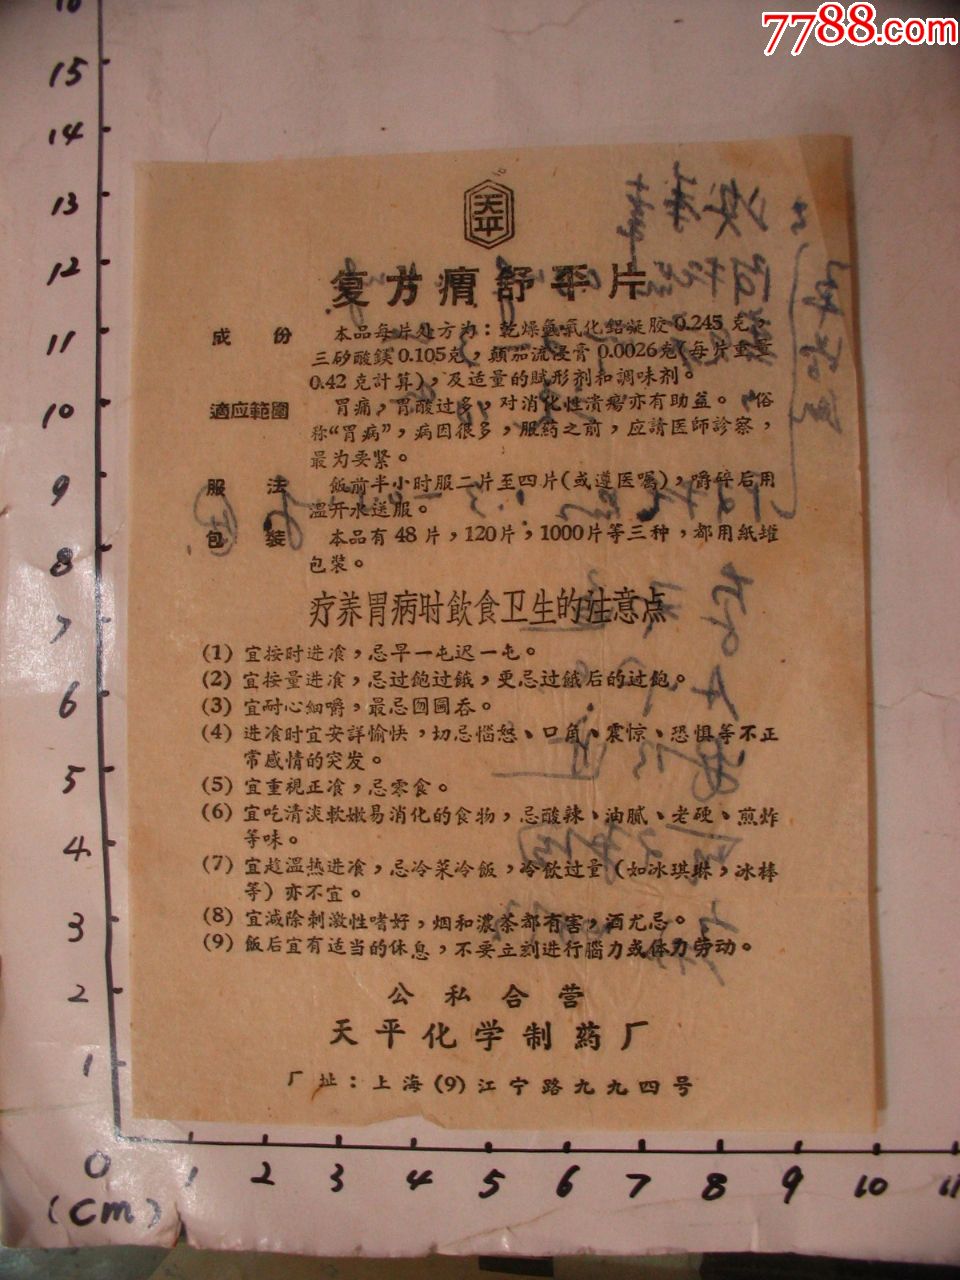 7788.com
天平
复方痟舒平片
成份 本品每片处方为：乾燥氫氧化鋁凝胶0.245克，
三矽酸鎂0.105克，顛茄流浸膏0.0026克(每片重量
0.42克計算)，及适量的賦形剂和調味剂。
適应範圍 胃痛，胃酸过多，对消化性潰瘍亦有助益。俗
称“胃病”，病因很多，服药之前，应請医師診察，
最为要紧。
服法 飯前半小时服二片至四片(或遵医嘱)，嚼碎后用
溫开水送服。
包裝 本品有48片，120片，1000片等三种，都用紙罐
包裝。
疗养胃病时飲食卫生的注意点
(1) 宜按时进飡，忌早一屯迟一屯。
(2) 宜按量进飡，忌过飽过餓，更忌过餓后的过飽。
(3) 宜耐心細嚼，最忌囫圇吞。
(4) 进飡时宜安詳愉快，切忌惱怒、口角、震惊、恐惧等不正
常感情的突发。
(5) 宜重視正飡，忌零食。
(6) 宜吃清淡軟嫩易消化的食物，忌酸辣、油膩、老硬、煎炸
等味。
(7) 宜趁溫热进飡，忌冷菜冷飯，冷飲过量(如冰琪琳，冰棒
等)亦不宜。
(8) 宜減除刺激性嗜好，烟和濃茶都有害，酒尤忌。
(9) 飯后宜有适当的休息，不要立刻进行腦力或体力劳动。
公私合营
天平化学制药厂
厂址：上海(9)江宁路九九四号
16
15
14
13
12
11
10
9
8
7
6
5
4
3
2
1
0 1 2 3 4 5 6 7 8 9 10 11
(cm)